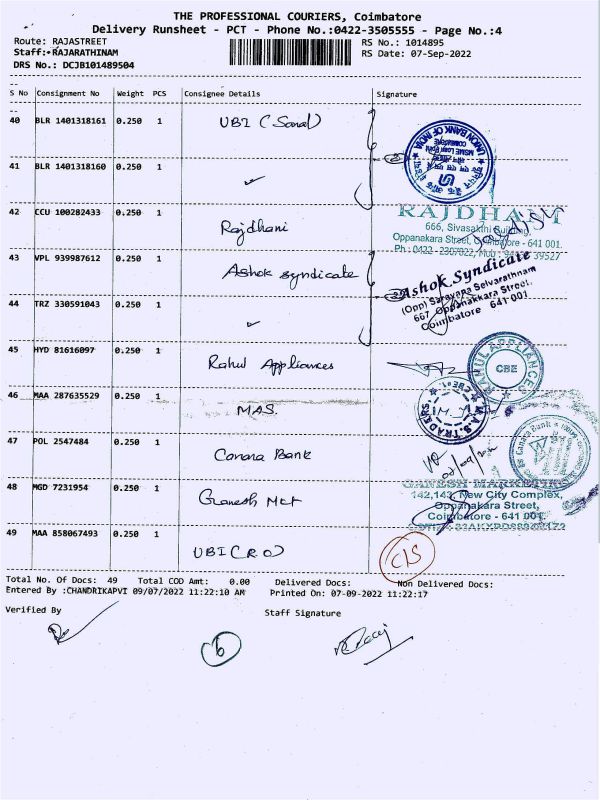 THE PROFESSIONAL COURIERS, Coimbatore
Delivery Runsheet - PCT - Phone No.:0422-3505555 - Page No.:4
Route: RAJASTREET
RS No.: 1014895
Staff:•RAJARATHINAM
RS Date: 07-Sep-2022
DRS No.: DCJB101489504
S No Consignment No Weight PCS Consignee Details Signature
40 BLR 1401318161 0.250 1 UBI (Saral)
UNION BANK OF INDIA
MSME Loan Point
COIMBATORE
41 BLR 1401318160 0.250 1 ✓
42 CCU 100282433 0.250 1 Rajdhani
RAJDHANI
666, Sivasakthi Building,
Oppanakara Street, Coimbatore - 641 001.
43 VPL 939987612 0.250 1 Ashok syndicate
Ashok Syndicate
(Opp) Saravana Selvarathnam
667, Oppanakkara Street,
Coimbatore 641 001.
44 TRZ 330591043 0.250 1 ✓
45 HYD 81616097 0.250 1 Rahul Appliances
RAHUL APPLIANCES
CBE
46 MAA 287635529 0.250 1 MAS.
M.A.S. TRADERS
CBE-1
47 POL 2547484 0.250 1 Canara Bank
Canara Bank
48 MGD 7231954 0.250 1 Ganesh Mkt
GANESH MARKETING
142,143, New City Complex,
Oppanakara Street,
Coimbatore - 641 001.
49 MAA 858067493 0.250 1 UBI (RO)
C/S
Total No. Of Docs: 49 Total COD Amt: 0.00 Delivered Docs: Non Delivered Docs:
Entered By :CHANDRIKAPVI 09/07/2022 11:22:10 AM Printed On: 07-09-2022 11:22:17
Verified By
Staff Signature
6